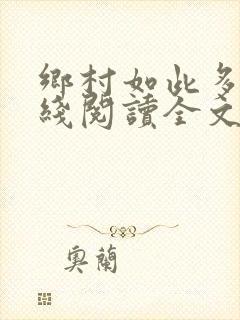 鄉村如此多
綫閱讀全文
奧蘭